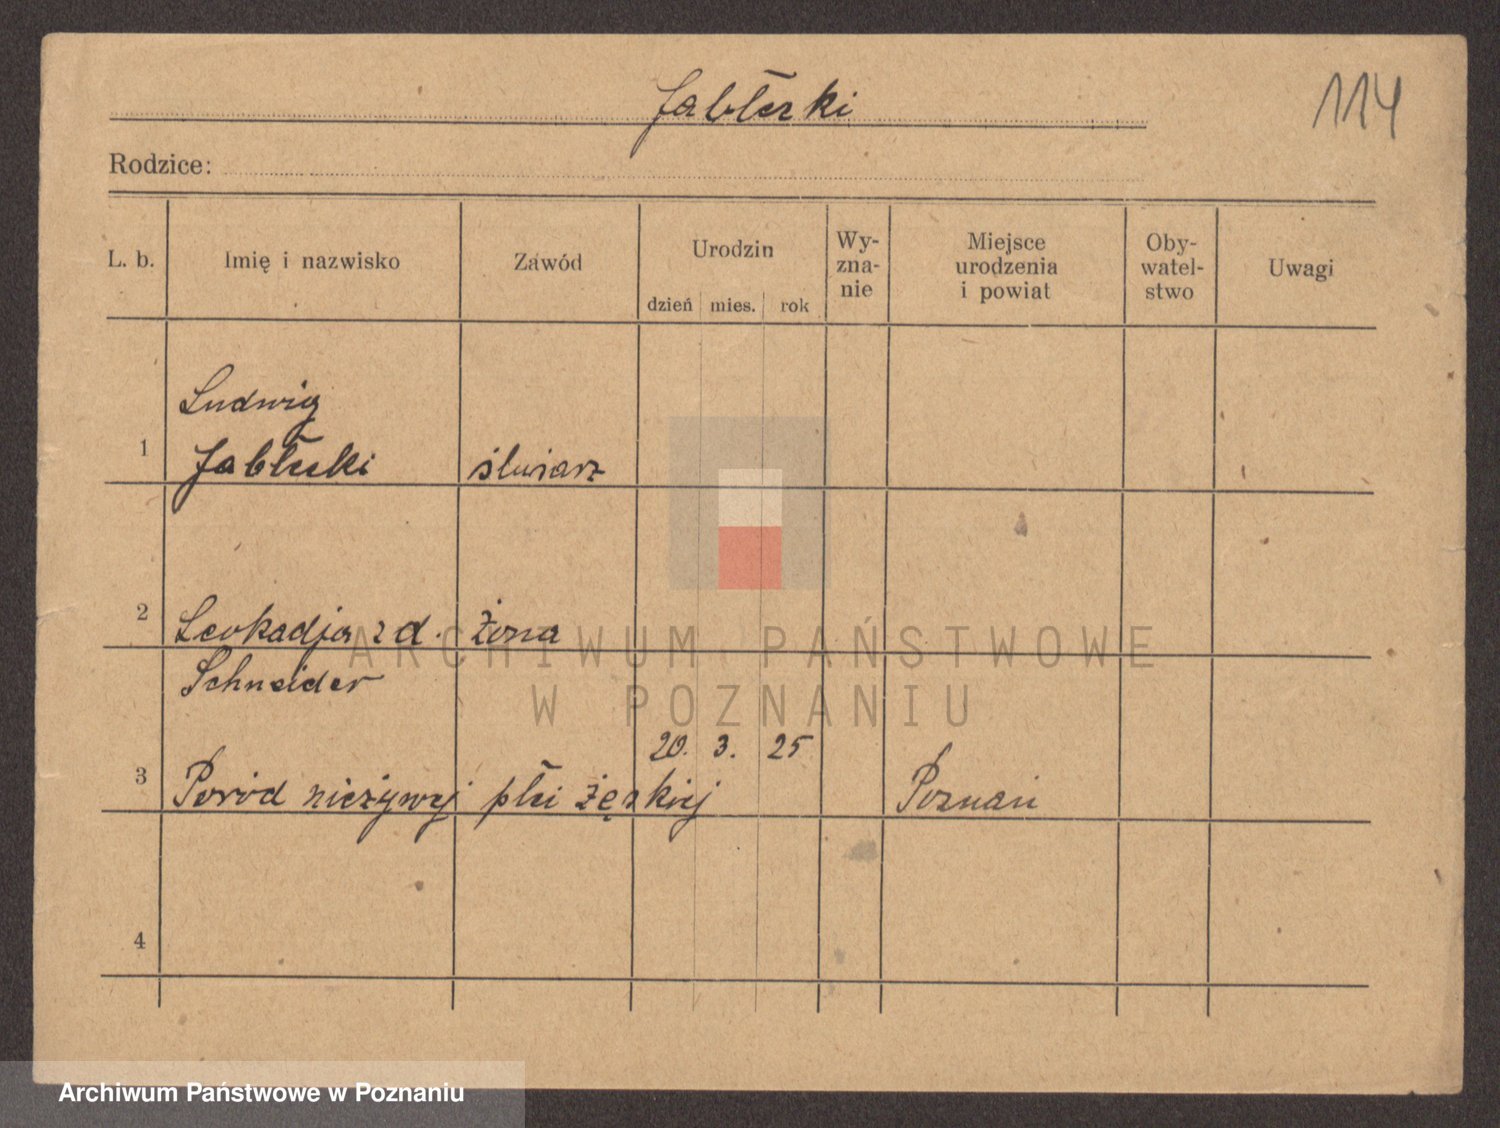 Jabłcski
114
Rodzice:
L. b. Imię i nazwisko Zawód Urodzin Wy-zna-nie Miejsce urodzenia i powiat Oby-watel-stwo Uwagi
dzień mies. rok
Ludwig
1 ślusarz
2 Leokadja z d. żona
Schneider
20. 3. 25
3 Poród nieżywy płci żeńskiej Poznań
4
ARCHIWUM PAŃSTWOWE
W POZNANIU
Archiwum Państwowe w Poznaniu